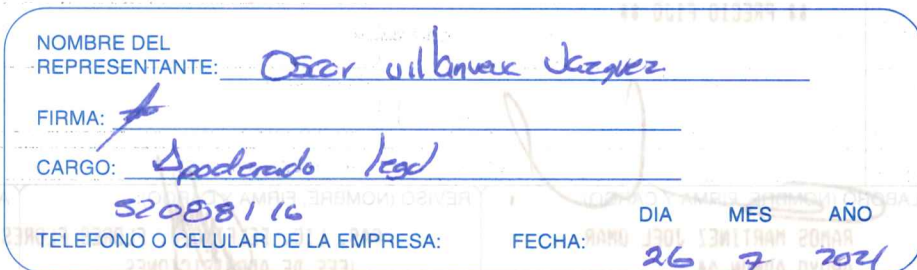 NOMBRE DEL
REPRESENTANTE: Oscar villanueva Vazquez
FIRMA:
CARGO: Apoderado legal
52088116
TELEFONO O CELULAR DE LA EMPRESA:
FECHA: DIA MES AÑO
26 7 2021